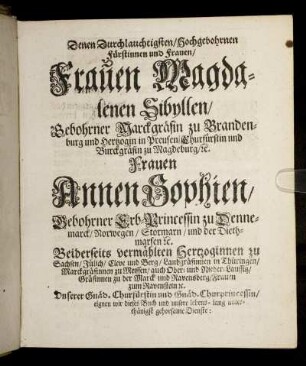 Denen Durchlauchtigsten/Hochgebohrnen
Fürstinnen und Frauen/
Frauen Magda-
lenen Sibyllen/
Gebohrner Marckgräfin zu Branden-
burg und Hertzogin in Preusen/Churfürstin und
Burckgräfin zu Magdeburg/ꝛc.
Frauen
Annen Sophien/
Gebohrner Erb-Princessin zu Denne-
marck/Norwegen/Stormarn/und der Dieth-
marsen ꝛc.
Beiderseits vermählten Hertzoginnen zu
Sachsen/Jülich/Cleve und Berg/Landgräfinnen in Thüringen/
Marckgräfinnen zu Meissen/auch Ober- und Nieder-Lausitz/
Gräfinnen zu der Marck und Ravensberg/Frauen
zum Ravenstein ꝛc.
Unserer Gnäd. Churfürstin und Gnäd. Churprincessin/
eignen wir dieses Buch und unsere lebens-lang unter-
thänigst gehorsame Dienste: